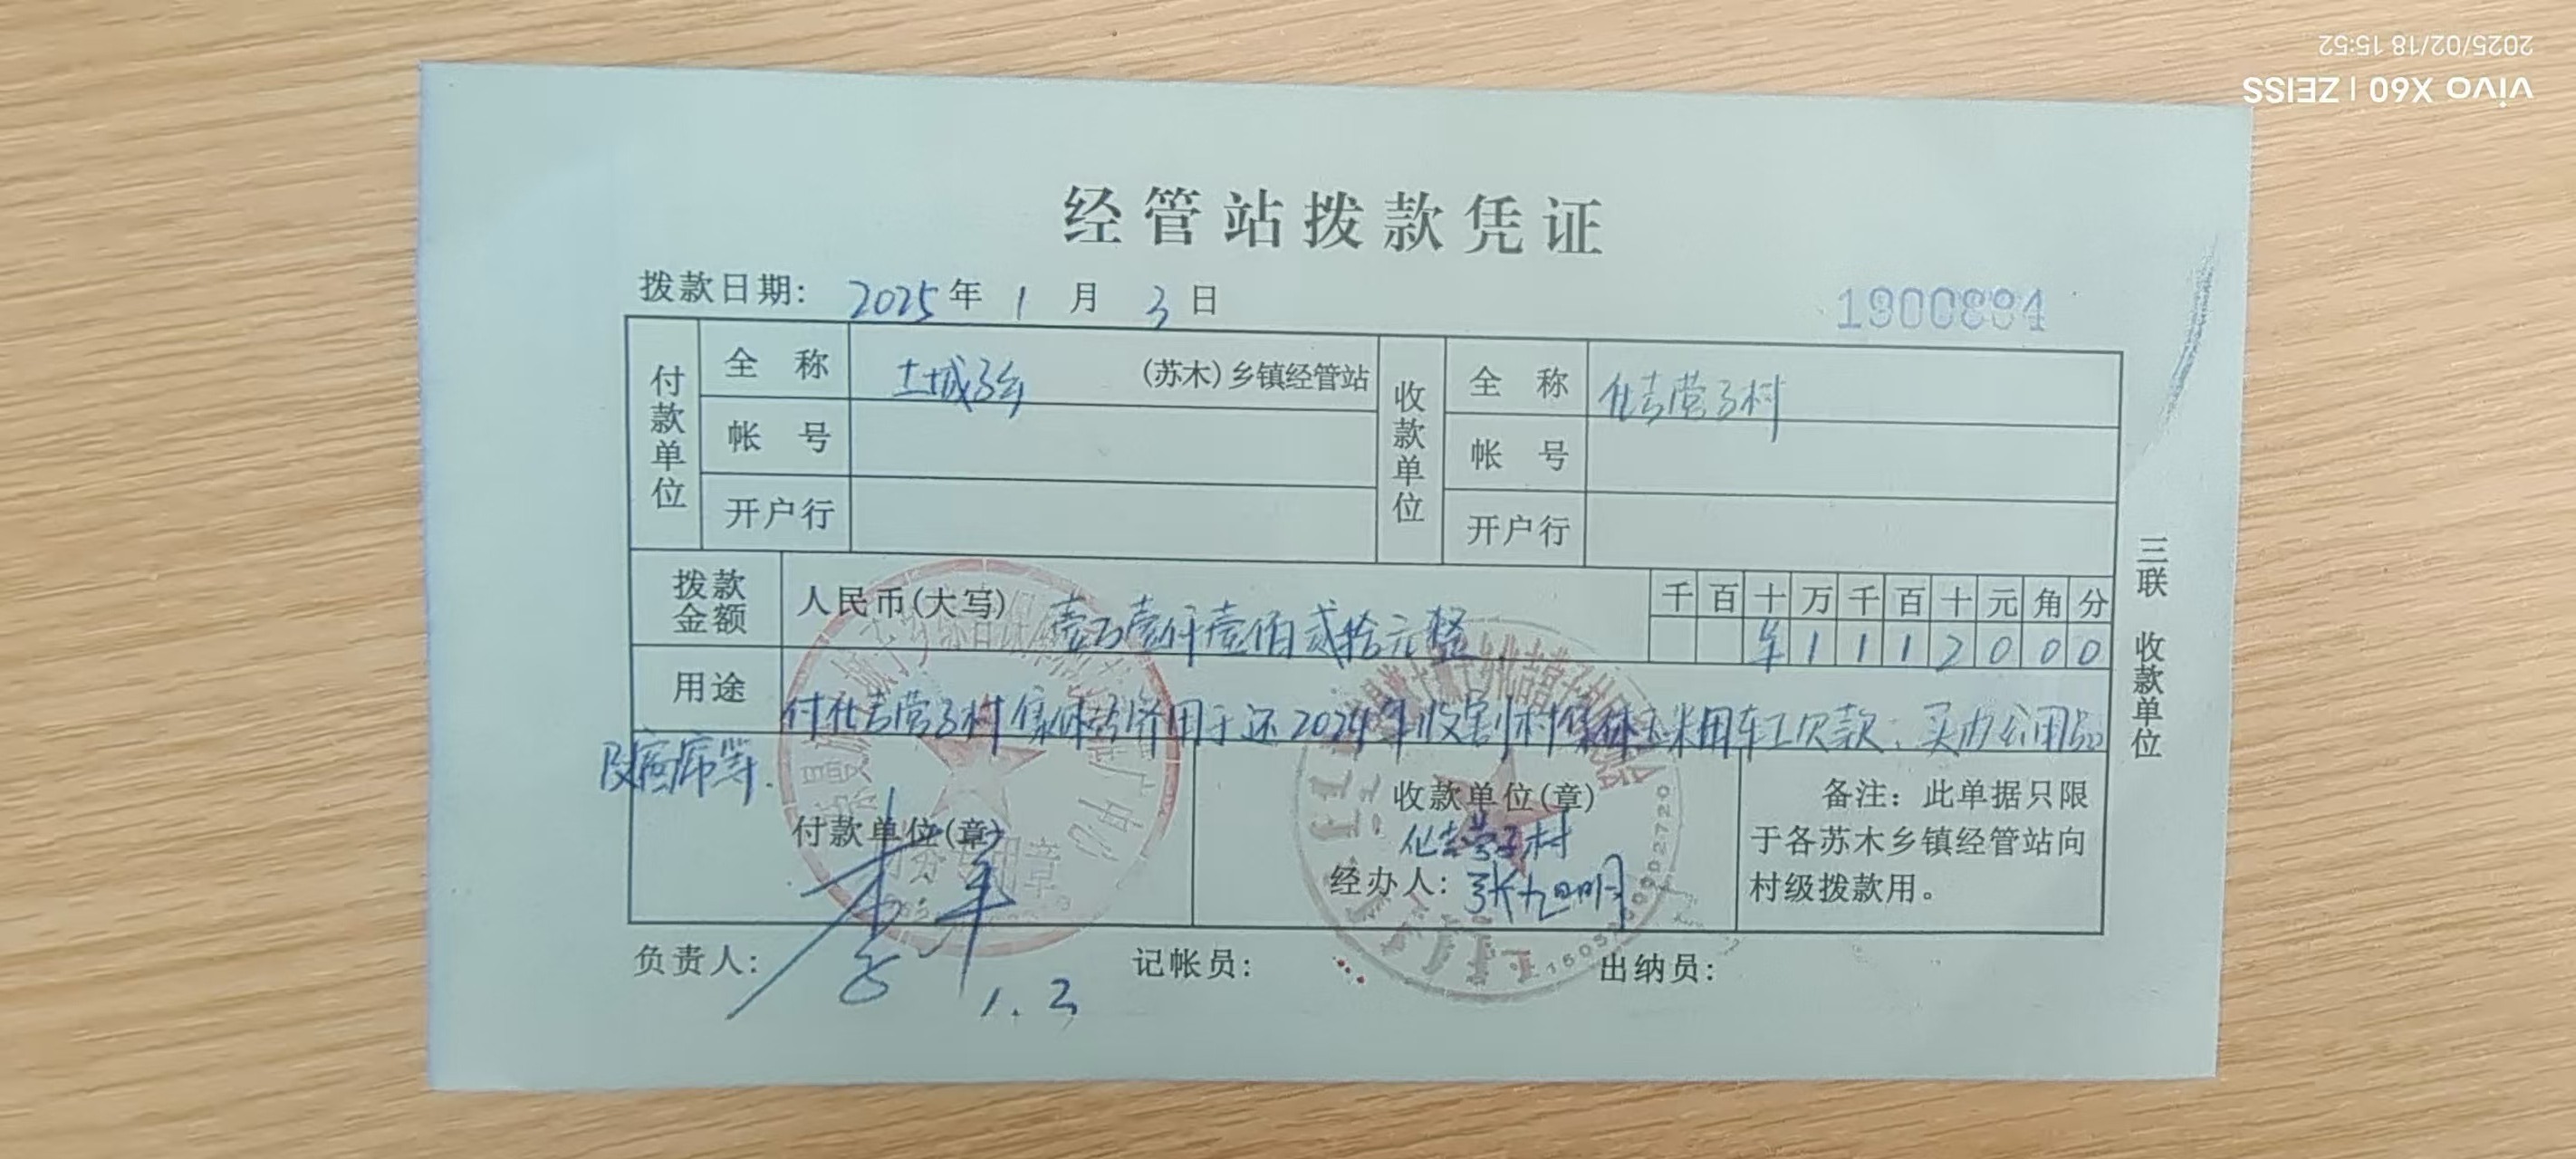 经管站拨款凭证
拨款日期: 2025年 1 月 3 日
1900894
付款单位
全称 土城子乡 (苏木)乡镇经管站
帐号
开户行
收款单位
全称 化吉营子村
帐号
开户行
拨款金额 人民币(大写) 壹万壹仟壹佰贰拾元整
千 百 十 万 千 百 十 元 角 分
¥ 1 1 1 2 0 0 0
用途 付化吉营子村 用于还2024年收割村集体玉米用车工欠款:买办公用品
及 等.
付款单位(章)
财务专用章
收款单位(章)
化吉营子村
经办人: 张旭明
备注:此单据只限
于各苏木乡镇经管站向
村级拨款用。
负责人:
1.3
记帐员:
出纳员:
三联 收款单位
vivo X60 | ZEISS
2025/02/18 15:52